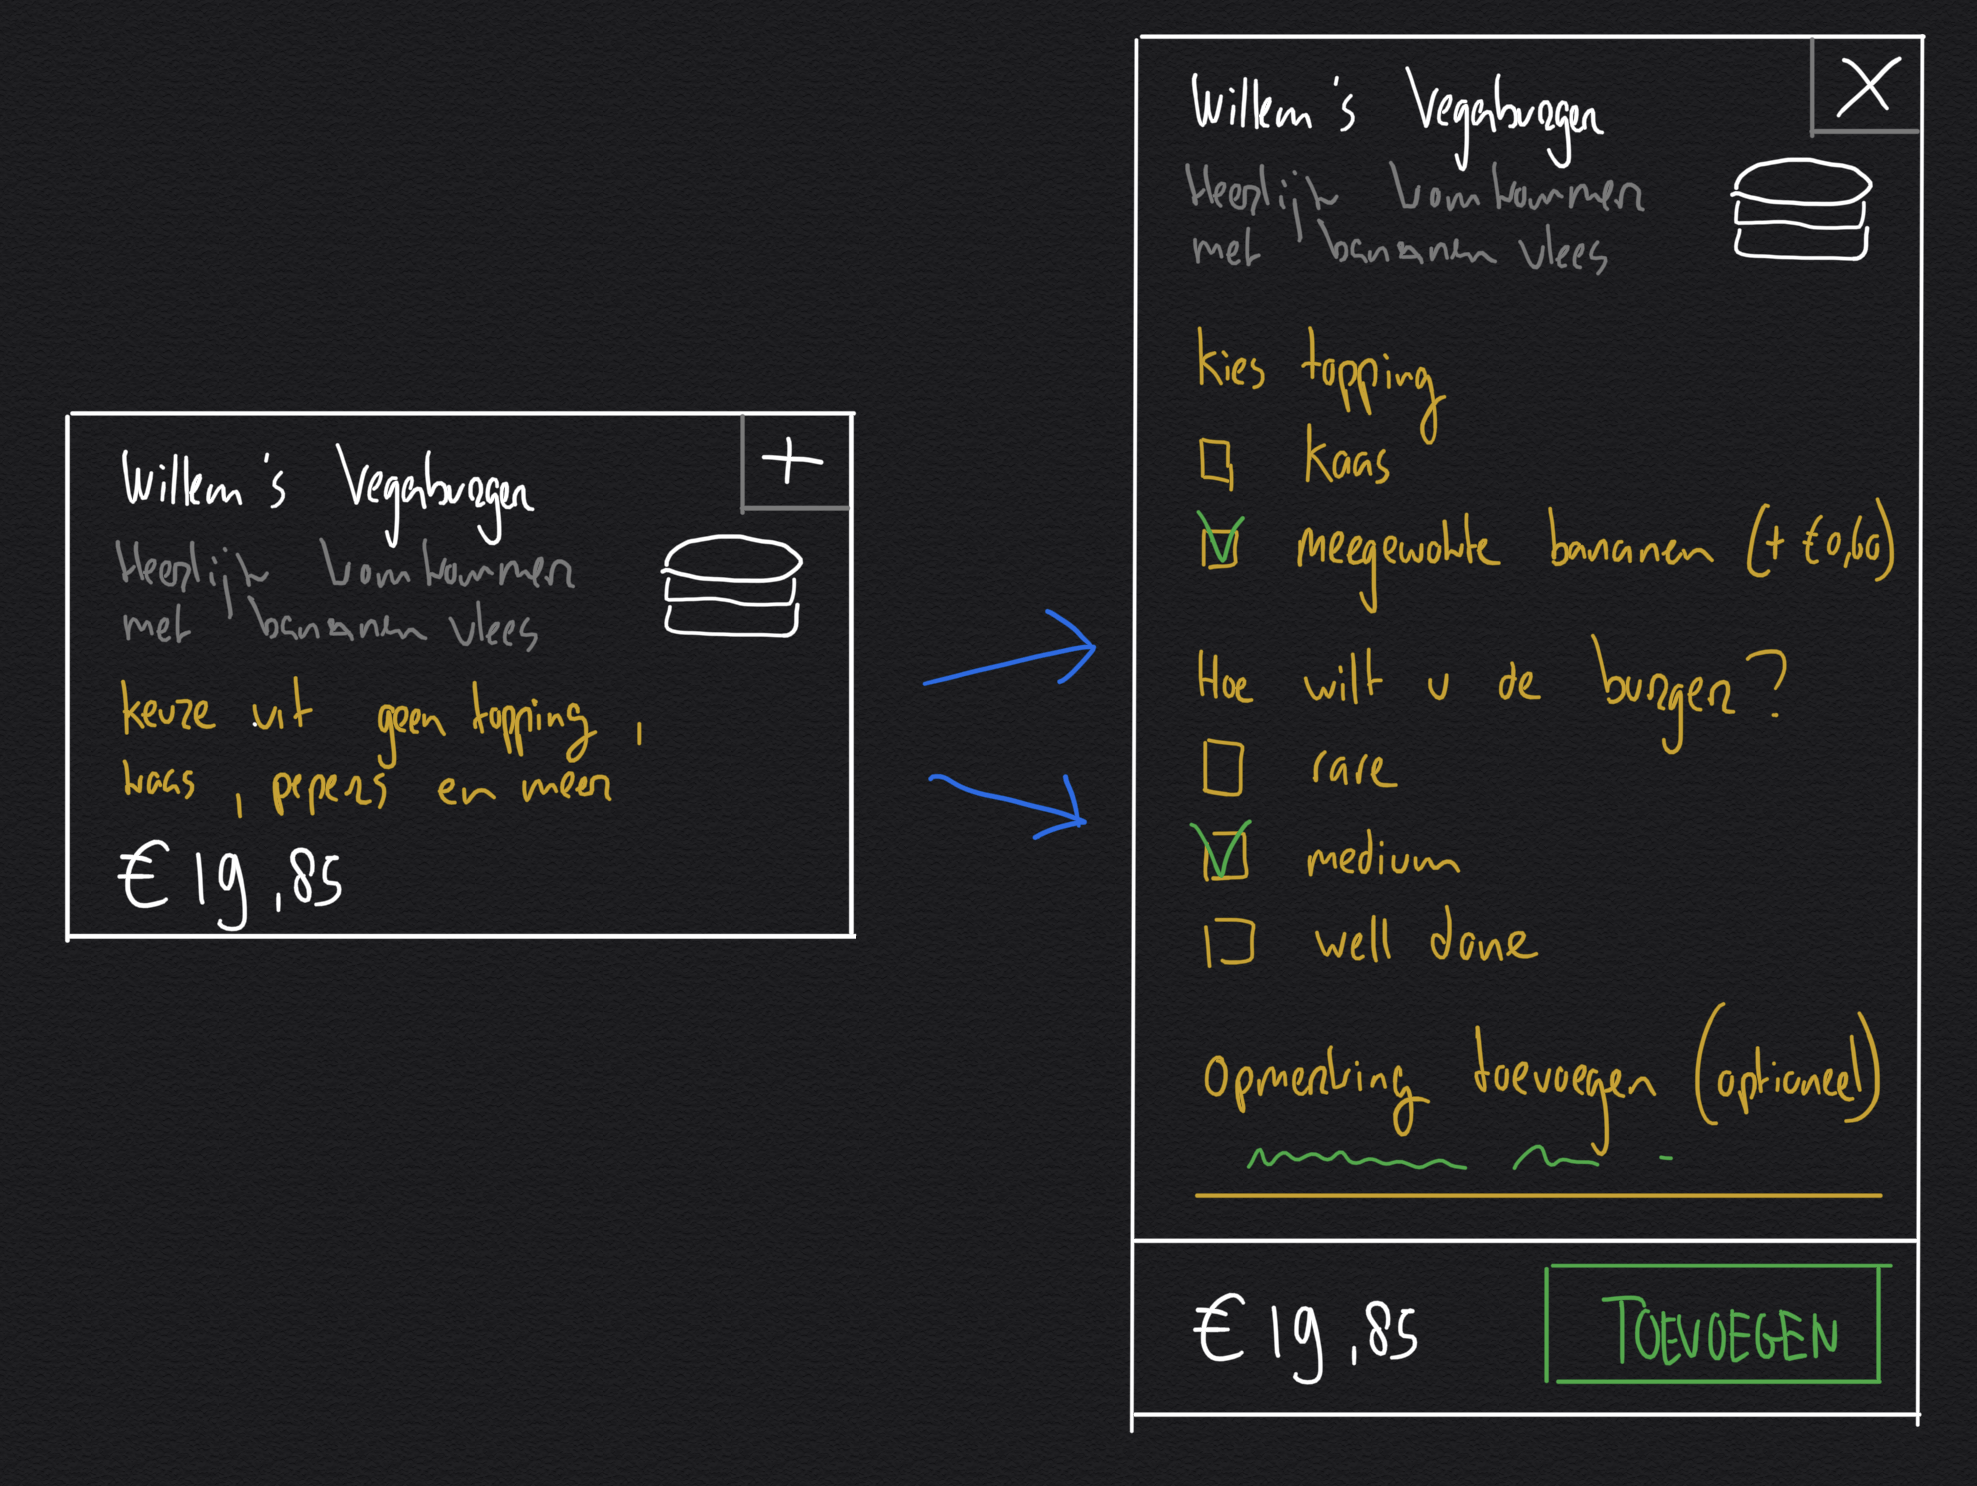 Willem's Vegaburger
Heerlijk komkommer
met bananen vlees
keuze uit geen topping,
kaas, pepers en meer
€ 19,85
Willem's Vegaburger
Heerlijk komkommer
met bananen vlees
kies topping
kaas
meegewokte bananen (+ €0,60)
Hoe wilt u de burger?
rare
medium
well done
Opmerking toevoegen (optioneel)
€ 19,85
TOEVOEGEN